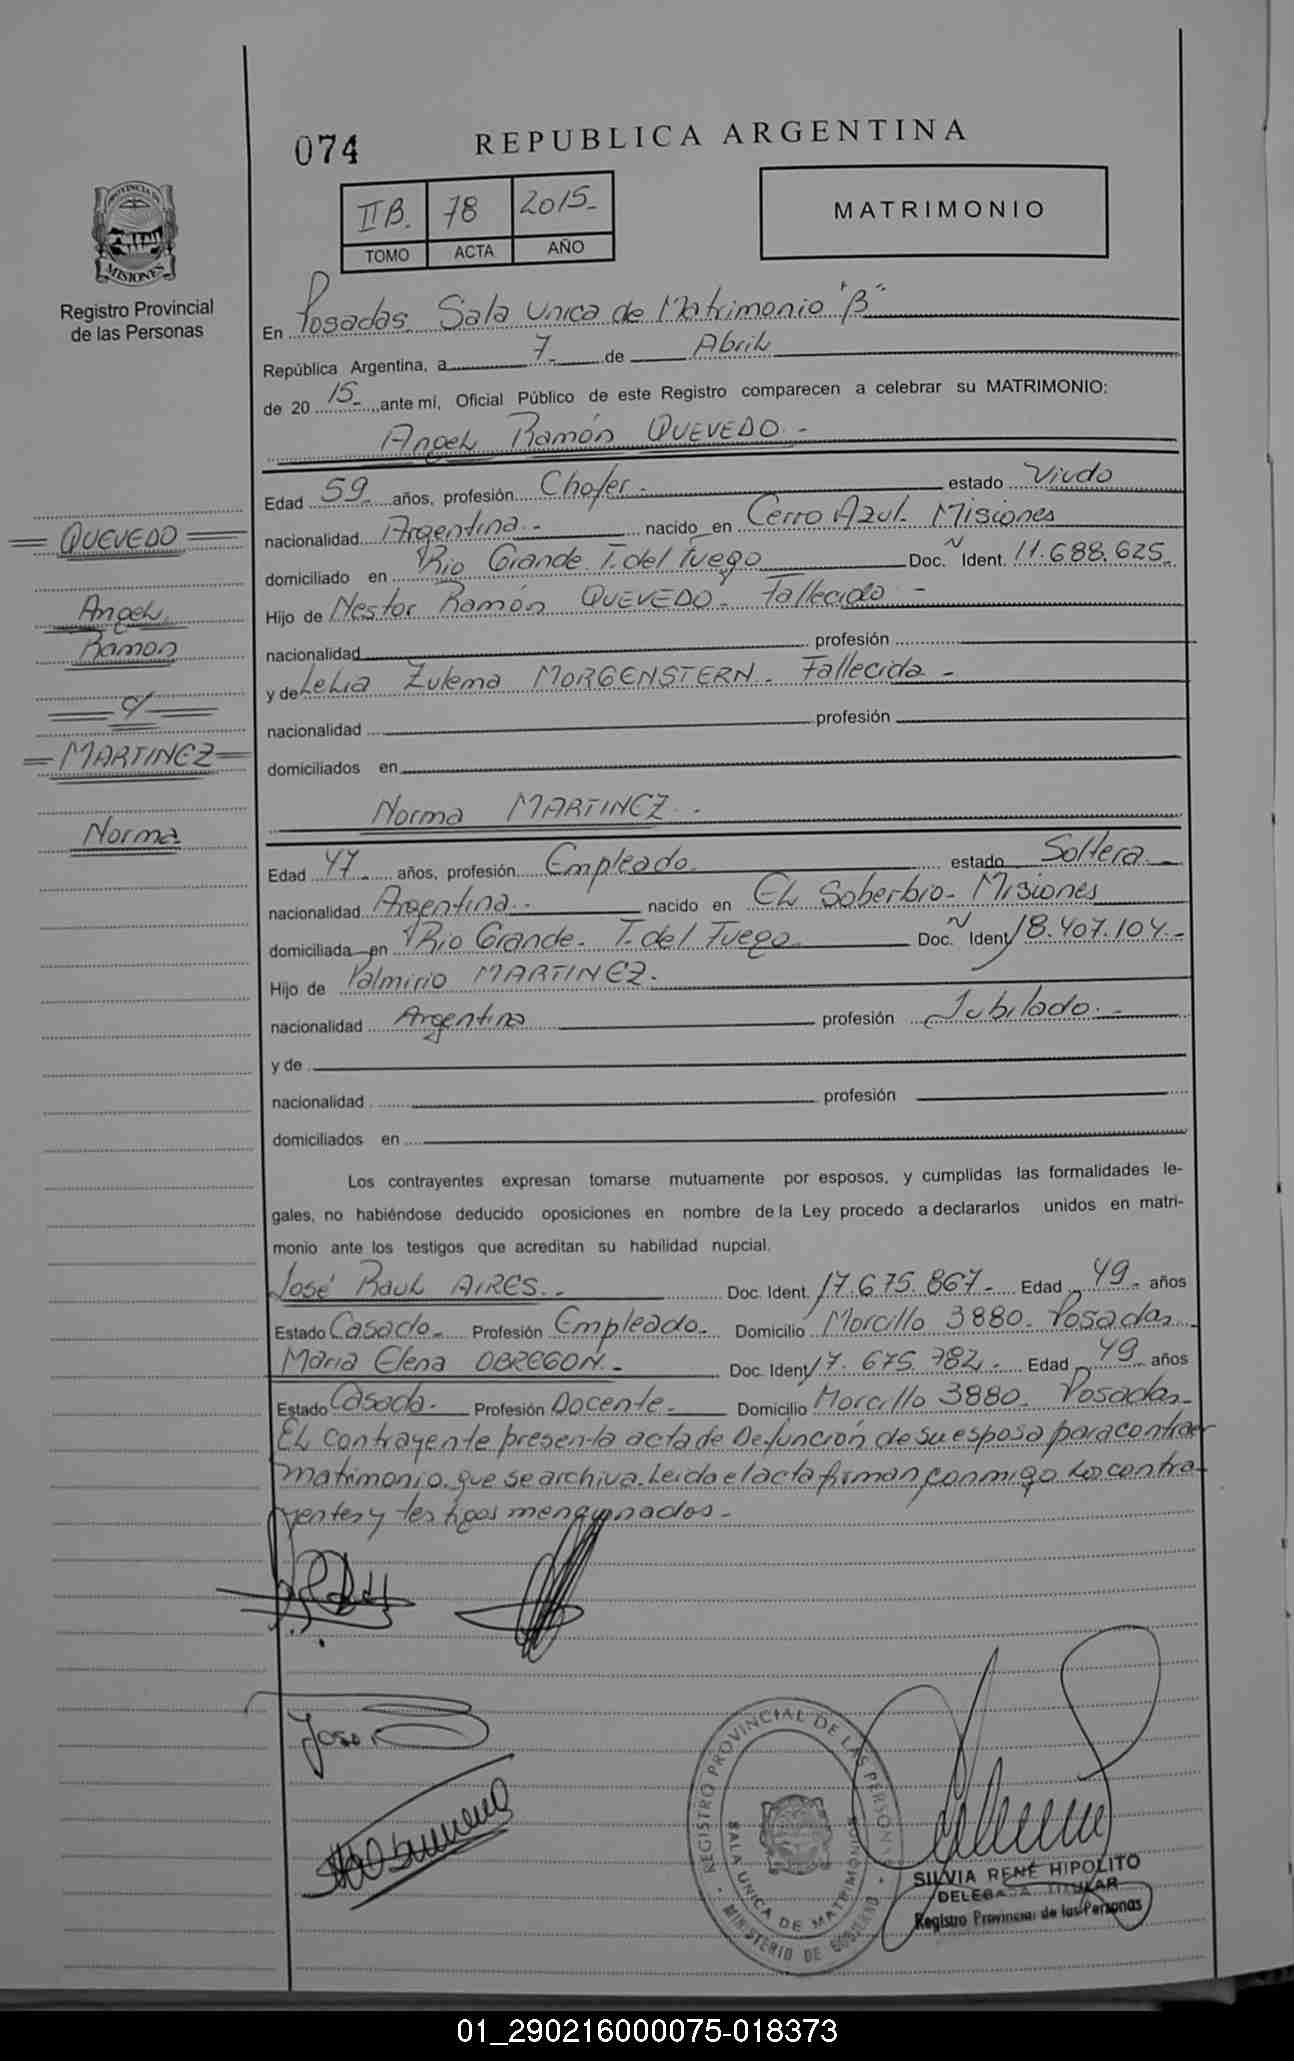 074 REPUBLICA ARGENTINA
PROVINCIA DE
MISIONES
Registro Provincial
de las Personas
IIB. 78 2015-
TOMO ACTA AÑO
MATRIMONIO
En Posadas. Sala Unica de Matrimonio "B"
República Argentina, a 7- de Abril
de 20 15- ante mí, Oficial Público de este Registro comparecen a celebrar su MATRIMONIO:
Angel Ramón QUEVEDO.-
Edad 59- años, profesión Chofer.- estado Viudo
nacionalidad Argentina.- nacido en Cerro Azul. Misiones
domiciliado en Rio Grande. T. del Fuego Doc. Ident. 11.688.625.
Hijo de Nestor Ramón QUEVEDO- Fallecido-
nacionalidad profesión
y de Lelia Zulema MORGENSTERN. Fallecida-
nacionalidad profesión
domiciliados en
Norma MARTINEZ.-
Edad 47- años, profesión Empleado. estado Soltera-
nacionalidad Argentina.- nacido en El Soberbio- Misiones
domiciliada en Rio Grande- T. del Fuego Doc. Ident. 18.407.104.-
Hijo de Palmirio MARTINEZ.
nacionalidad Argentina profesión Jubilado.-
y de
nacionalidad profesión
domiciliados en
Los contrayentes expresan tomarse mutuamente por esposos, y cumplidas las formalidades le-
gales, no habiéndose deducido oposiciones en nombre de la Ley procedo a declararlos unidos en matri-
monio ante los testigos que acreditan su habilidad nupcial.
José Raul AIRES.- Doc. Ident. 17.675.867- Edad 49- años
Estado Casado.- Profesión Empleado.- Domicilio Morcillo 3880. Posadas-
Maria Elena OBREGON.- Doc. Ident. 17.675.782.- Edad 49 años
Estado Casada.- Profesión Docente.- Domicilio Morcillo 3880. Posadas-
El contrayente presenta acta de Defunción de su esposa para contraer
matrimonio, que se archiva. Leida el acta firman conmigo los contra-
yentes y testigos mencionados-
QUEVEDO
Angel
Ramon
c/
MARTINEZ
Norma
José
REGISTRO PROVINCIAL DE LAS PERSONAS
SALA UNICA DE MATRIMONIO
MINISTERIO DE GOBIERNO
SILVIA RENÉ HIPOLITO
DELEGADA TITULAR
Registro Provincial de las Personas
01_290216000075-018373